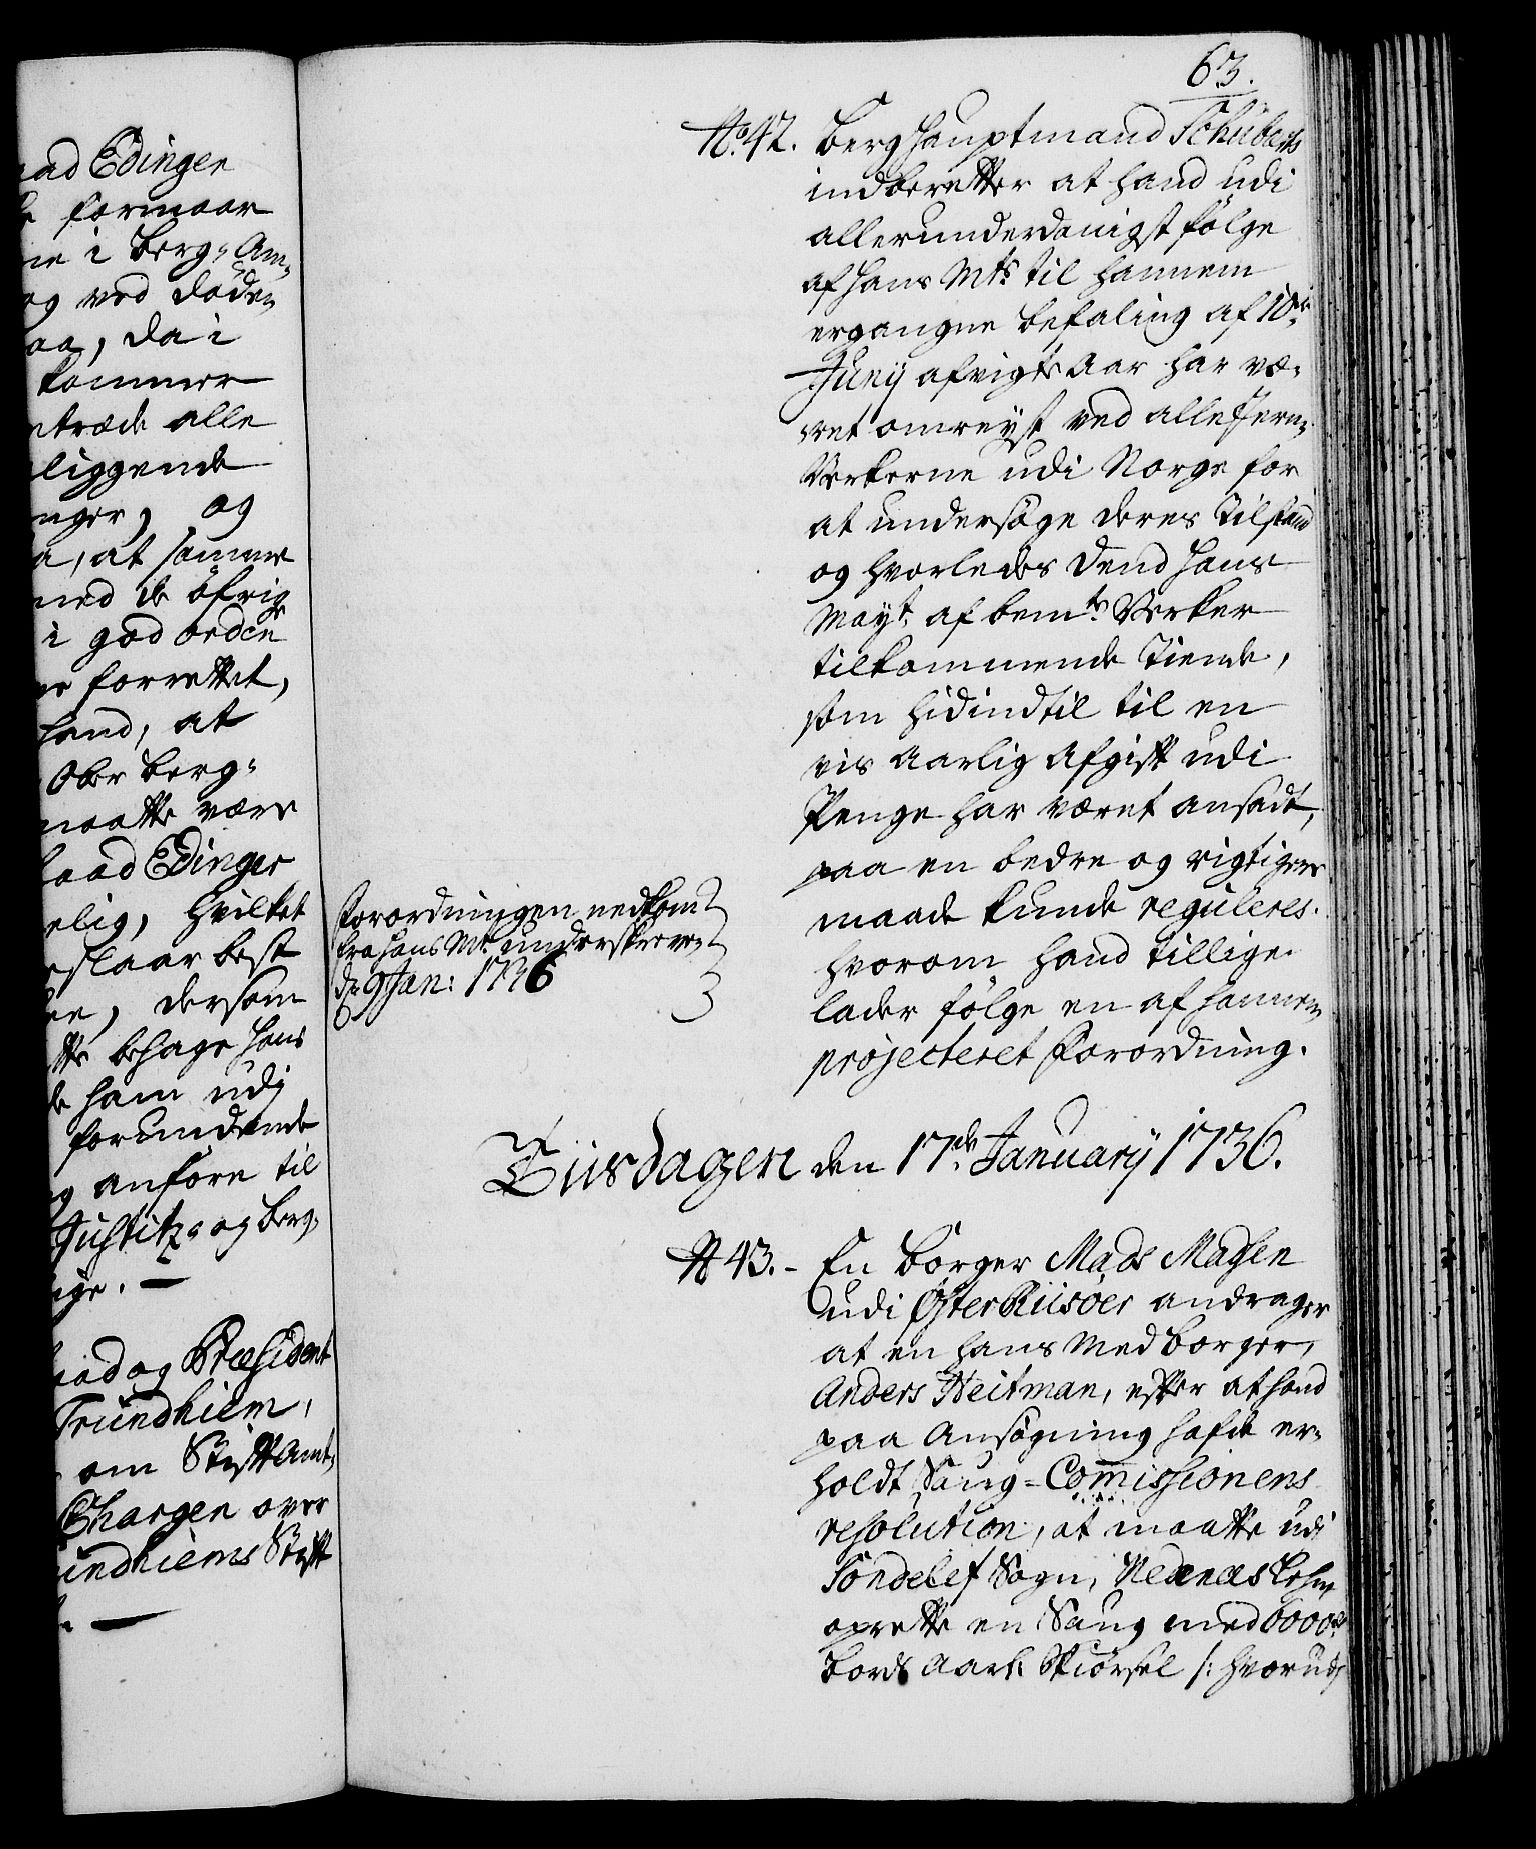 aad Edinger
formaar
ne i Berg-Am-
og ved doden
aa, da i
kommer
ntræde alle
liggende
nger, og
a, at samme
med de öfrige
i god orden
er forrettet,
hand, at
Ober berg-
maatte være
aad Edinger
elig, hvilket
eslaar best
een, dersom
tte behage Hans
de ham udj
forundende
g anføre til
Justitz- og berg-
ige. —
aad og Præsident
Trundhiem,
om StiftAmt-
Chargen over
undhiems Stift
—
63.
No. 42. Berghauptmand Schübarts
indberetter at hand udi
allerunderdanigst følge
af Hans Mts til hannem
ergangne befaling af 10de
Junij afvigte Aar har væ-
ret omreyst ved alle Jern-
Verkerne udi Norge for
at undersøge deres Tilstand
og hvorledes dend Hans
Mayt. af bemte Verker
tilkommende Tiende,
som hidindtil til en
vis Aarlig Afgift udi
Penge har været ansadt,
paa en bedre og rigtigere
maade kunde reguleres.
hvorom hand tillige
lader følge en af hannem
projecteret Forordning.
Forordningen nedkom
fra Hans Mt. underskreven
d. 9 Jan: 1736
Tiisdagen den 17de January 1736.
No 43. - En Borger Mads Madsen
udi ØsterRiisöer andrager
at en hans Medborger,
Anders Heitman, efter at hand
paa Ansøgning hafde er-
holdt Saug-Comissionens
resolution, at maatte udi
Söndelef Sogn, Nedenæs Lehn
oprette en Saug med 6000de
bords Aarl. Skiørsel /: hvorudj